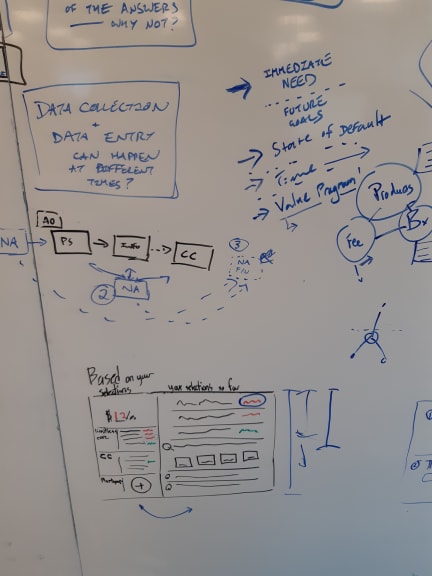 OF THE ANSWERS
— WHY NOT?
DATA COLLECTION
+
DATA ENTRY
CAN HAPPEN
AT DIFFERENT
TIMES?
→ IMMEDIATE
NEED
FUTURE
GOALS
→ State of Default
→ Time
→ Value Program!
Produces
Fee
Box
AO
NA
PS
CC
2
NA
3
NA
F/U
Based on your
selections
your selections so far
CC
+